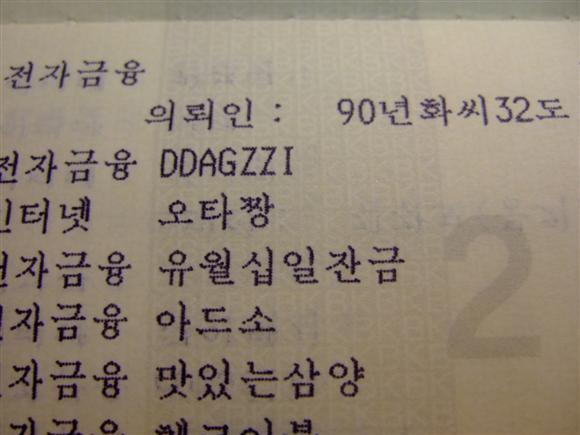 전자금융
의뢰인 : 90년화씨32도
전자금융 DDAGZZI
인터넷 오타짱
전자금융 유월십일잔금
전자금융 아드소
전자금융 맛있는삼양
자금융
2